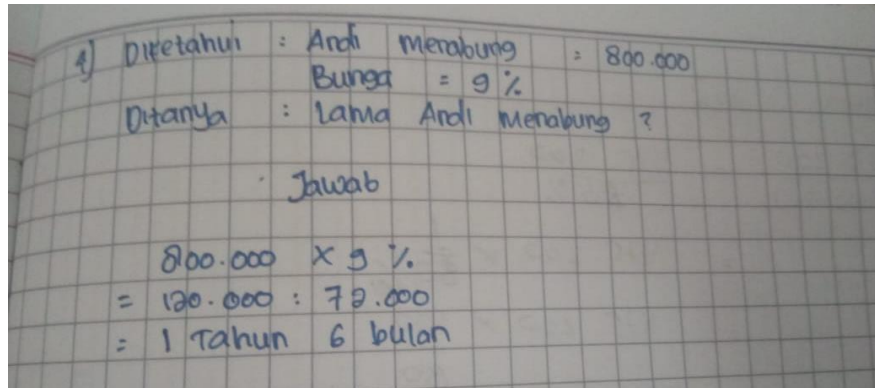 1) Diketahui : Andi menabung = 800.000
Bunga = 9 %
Ditanya : Lama Andi menabung ?
Jawab
800.000 x 9 %
= 120.000 : 72.000
= 1 Tahun 6 bulan